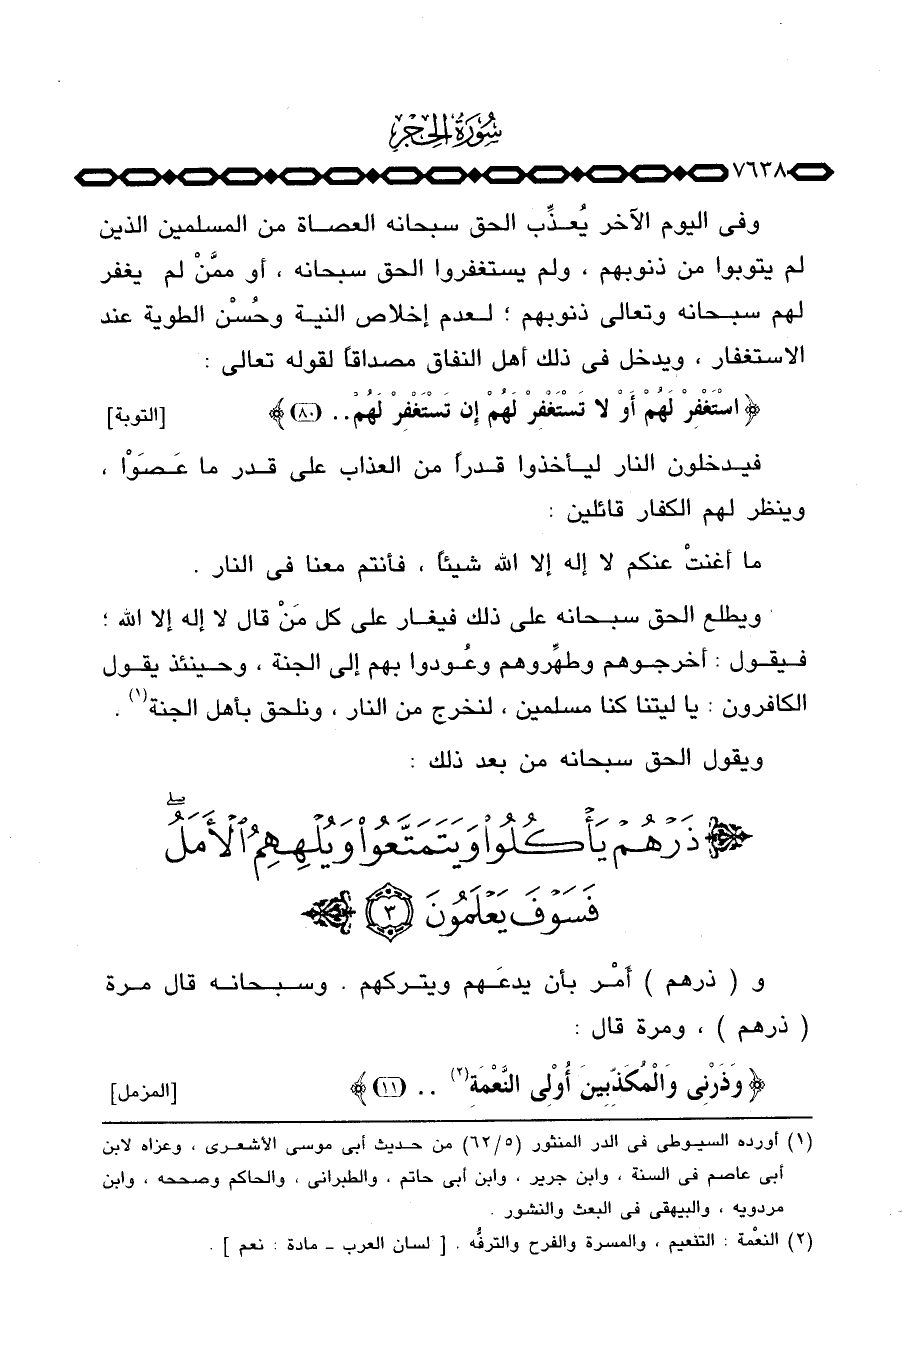 سُورَةُ الحِجْرِ
٧٦٣٨
وفى اليوم الآخر يُعـذِّب الحق سبحانه العصاة من المسلمين الذين
لم يتوبوا من ذنوبهم ، ولم يستغفروا الحق سبحانه ، أو ممَّنْ لم يغفر
لهم سبحانه وتعالى ذنوبهم ؛ لعدم إخلاص النية وحُسْن الطوية عند
الاستغفار ، ويدخل فى ذلك أهل النفاق مصداقاً لقوله تعالى :
﴿ اسْتَغْفِرْ لَهُمْ أَوْ لا تَسْتَغْفِرْ لَهُمْ إِن تَسْتَغْفِرْ لَهُمْ .. (٨٠) ﴾ [التوبة]
فيدخلون النار ليأخذوا قدراً من العذاب على قدر ما عَصَوْا ،
وينظر لهم الكفار قائلين :
ما أغنتْ عنكم لا إله إلا الله شيئاً ، فأنتم معنا فى النار .
ويطلع الحق سبحانه على ذلك فيغار على كل مَنْ قال لا إله إلا الله ؛
فيقول : أخرجوهم وطهِّروهم وعُودوا بهم إلى الجنة ، وحينئذ يقول
الكافرون : يا ليتنا كنا مسلمين ، لنخرج من النار ، ونلحق بأهل الجنة(١) .
ويقول الحق سبحانه من بعد ذلك :
﴿ ذَرْهُمْ يَأْكُلُواْ وَيَتَمَتَّعُواْ وَيُلْهِهِمُ ٱلْأَمَلُۖ
فَسَوْفَ يَعْلَمُونَ ٣ ﴾
و ( ذرهم ) أمْر بأن يدعَهم ويتركهم . وسبحانه قال مرة
( ذرهم ) ، ومرة قال :
﴿ وَذَرْنِى وَالْمُكَذِّبِينَ أُوْلِى النَّعْمَةِ(٢) .. (١١) ﴾ [المزمل]
(١) أورده السيوطى فى الدر المنثور (٦٢/٥) من حديث أبى موسى الأشعرى ، وعزاه لابن
أبى عاصم فى السنة ، وابن جرير ، وابن أبى حاتم ، والطبرانى ، والحاكم وصححه ، وابن
مردويه ، والبيهقى فى البعث والنشور .
(٢) النعْمة : التنعيم ، والمسرة والفرح والترفُّه . [ لسان العرب - مادة : نعم ] .